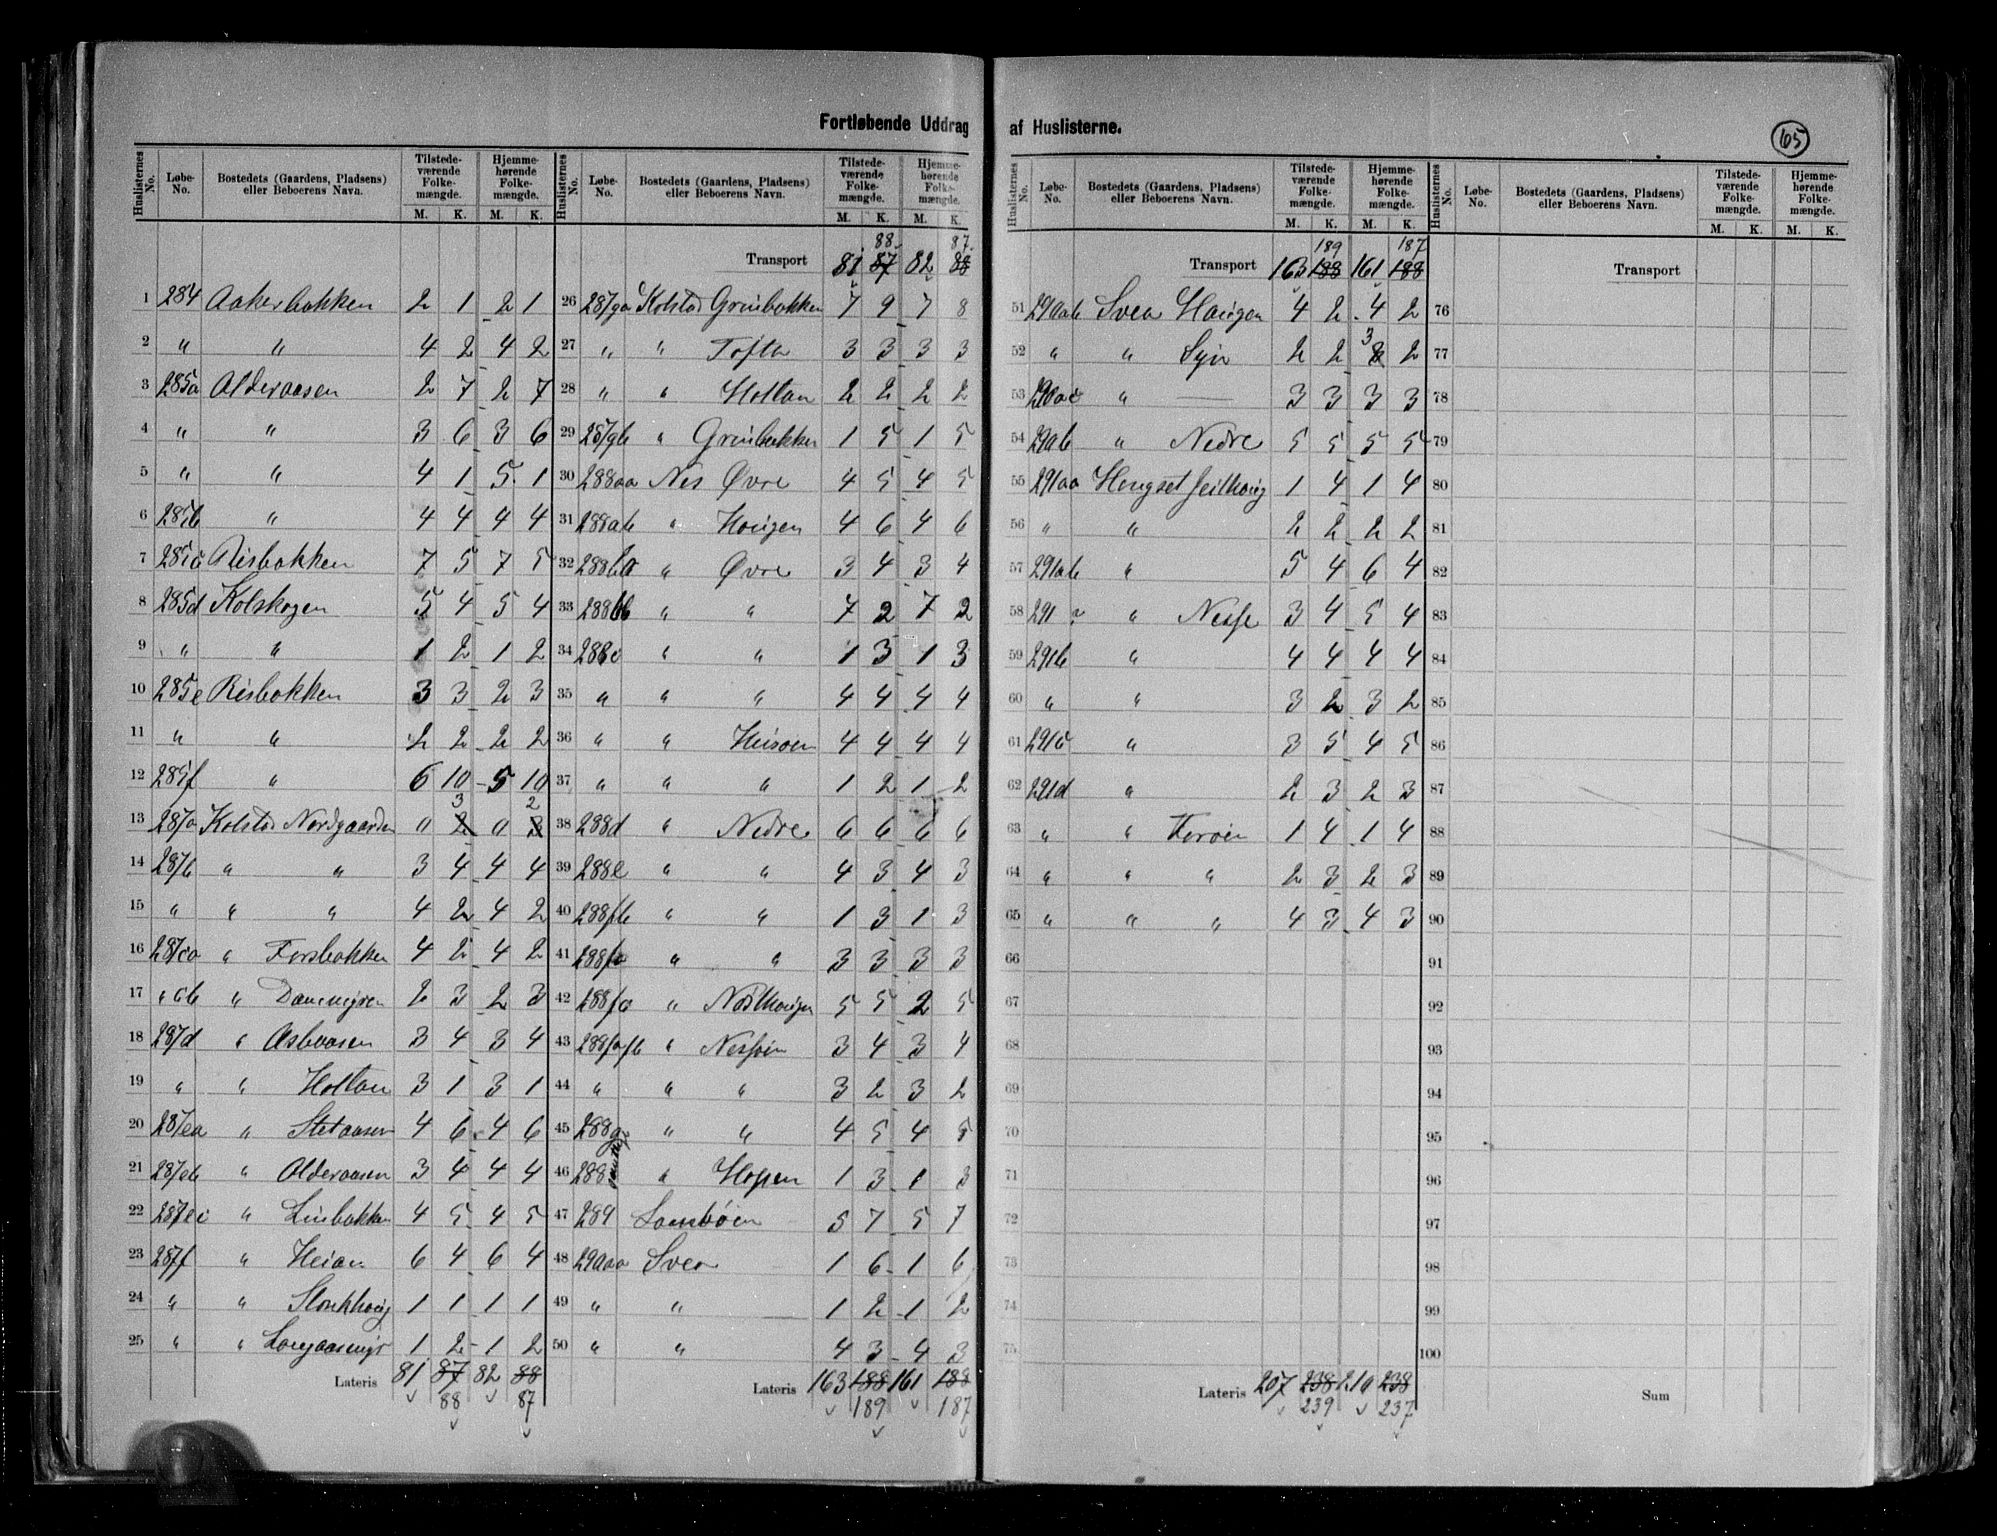 Fortløbende Uddrag af Huslisterne.
65
Huslisternes No. Løbe-No. Bostedets (Gaardens, Pladsens) eller Beboerens Navn. Tilstedeværende Folkemængde. M. K. Hjemmehørende Folkemængde. M. K.
1 284 Aakerbakken 2 1 2 1
2 " " 4 2 4 2
3 285a Alderaasen 2 7 2 7
4 " " 3 6 3 6
5 " " 4 1 5 1
6 285b " 4 4 4 4
7 285c Risbakken 7 5 7 5
8 285d Kolskogen 5 4 5 4
9 " " 1 2 1 2
10 285e Risbakken 3 3 2 3
11 " " 2 2 2 2
12 285f " 6 10 5 10
13 287a Kolstad Nordgaarden " 3 " 2
14 287b " " 3 4 4 4
15 " " " 4 2 4 2
16 287ca " Forsbakken 4 2 4 2
17 " cb " Dammyren 2 3 2 3
18 287d " Asbaasen 3 4 3 4
19 " " Holtan 3 1 3 1
20 287ea " Stetaasen 4 6 4 6
21 287eb " Alderaasen 3 4 4 4
22 287ec " Linbakken 4 5 4 5
23 287f " Heian 6 4 6 4
24 " " Stonkhaug 1 1 1 1
25 " " 1 2 1 2
Lateris 81 87 82 88
88 87
Huslisternes No. Løbe-No. Bostedets (Gaardens, Pladsens) eller Beboerens Navn. Tilstedeværende Folkemængde. M. K. Hjemmehørende Folkemængde. M. K.
88 87
Transport 81 87 82 88
26 287ga Kolstad Grinbakken 7 9 7 8
27 " " Tofta 3 3 3 3
28 " " Holtan 2 2 2 2
29 287gb " Grinbakken 1 5 1 5
30 288aa Nes Øvre 4 5 4 5
31 288ab " Haugen 4 6 4 6
32 288ba " Øvre 3 4 3 4
33 288bb " " 7 2 7 2
34 288c " " 1 3 1 3
35 " " " 4 4 4 4
36 " " 4 4 4 4
37 " " " 1 2 1 2
38 288d " Nedre 6 6 6 6
39 288e " " 4 3 4 3
40 288fb " " 1 3 1 3
41 288fa " " 3 3 3 3
42 288fc " Nordhaugen 5 5 2 5
43 " Nessøin 3 4 3 4
44 " " " 3 2 3 2
45 288g " " 4 5 4 5
46 288 " Hopen 1 3 1 3
47 289 5 7 5 7
48 290aa Svea 1 6 1 6
49 " " 1 2 1 2
50 " " 4 3 4 3
Lateris 163 188 161 188
189 187
Huslisternes No. Løbe-No. Bostedets (Gaardens, Pladsens) eller Beboerens Navn. Tilstedeværende Folkemængde. M. K. Hjemmehørende Folkemængde. M. K.
189 187
Transport 163 188 161 188
51 290ab Svea Haugen 4 2 4 2
52 " " Syn 2 2 3 2
53 290ac " — 3 3 3 3
54 290b " Nedre 5 5 5 5
55 291aa 1 4 1 4
56 " " 2 2 2 2
57 291ab " 5 4 6 4
58 291 ? " Nesse 3 4 5 4
59 291b " 4 4 4 4
60 " " 3 2 3 2
61 291c " 3 5 4 5
62 291d " 2 3 2 3
63 " " 1 4 1 4
64 " " " 2 3 2 3
65 " " " 4 3 4 3
66
67
68
69
70
71
72
73
74
75
Lateris 207 238 210 238
239 237
Huslisternes No. Løbe-No. Bostedets (Gaardens, Pladsens) eller Beboerens Navn. Tilstedeværende Folkemængde. M. K. Hjemmehørende Folkemængde. M. K.
Transport
76
77
78
79
80
81
82
83
84
85
86
87
88
89
90
91
92
93
94
95
96
97
98
99
100
Sum